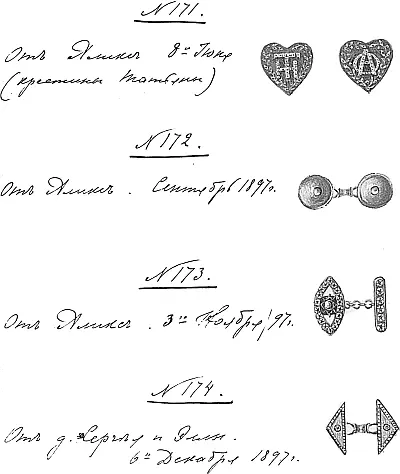 N 171.
Отъ Аликсъ 8го Июня
(крестины Татьяны)
N 172.
Отъ Аликсъ. Сентябрь 1897г.
N 173.
Отъ Аликсъ. 3го Ноября, 97г.
N 174.
Отъ д. Сергѣя и Эллы.
6го Декабря 1897г.